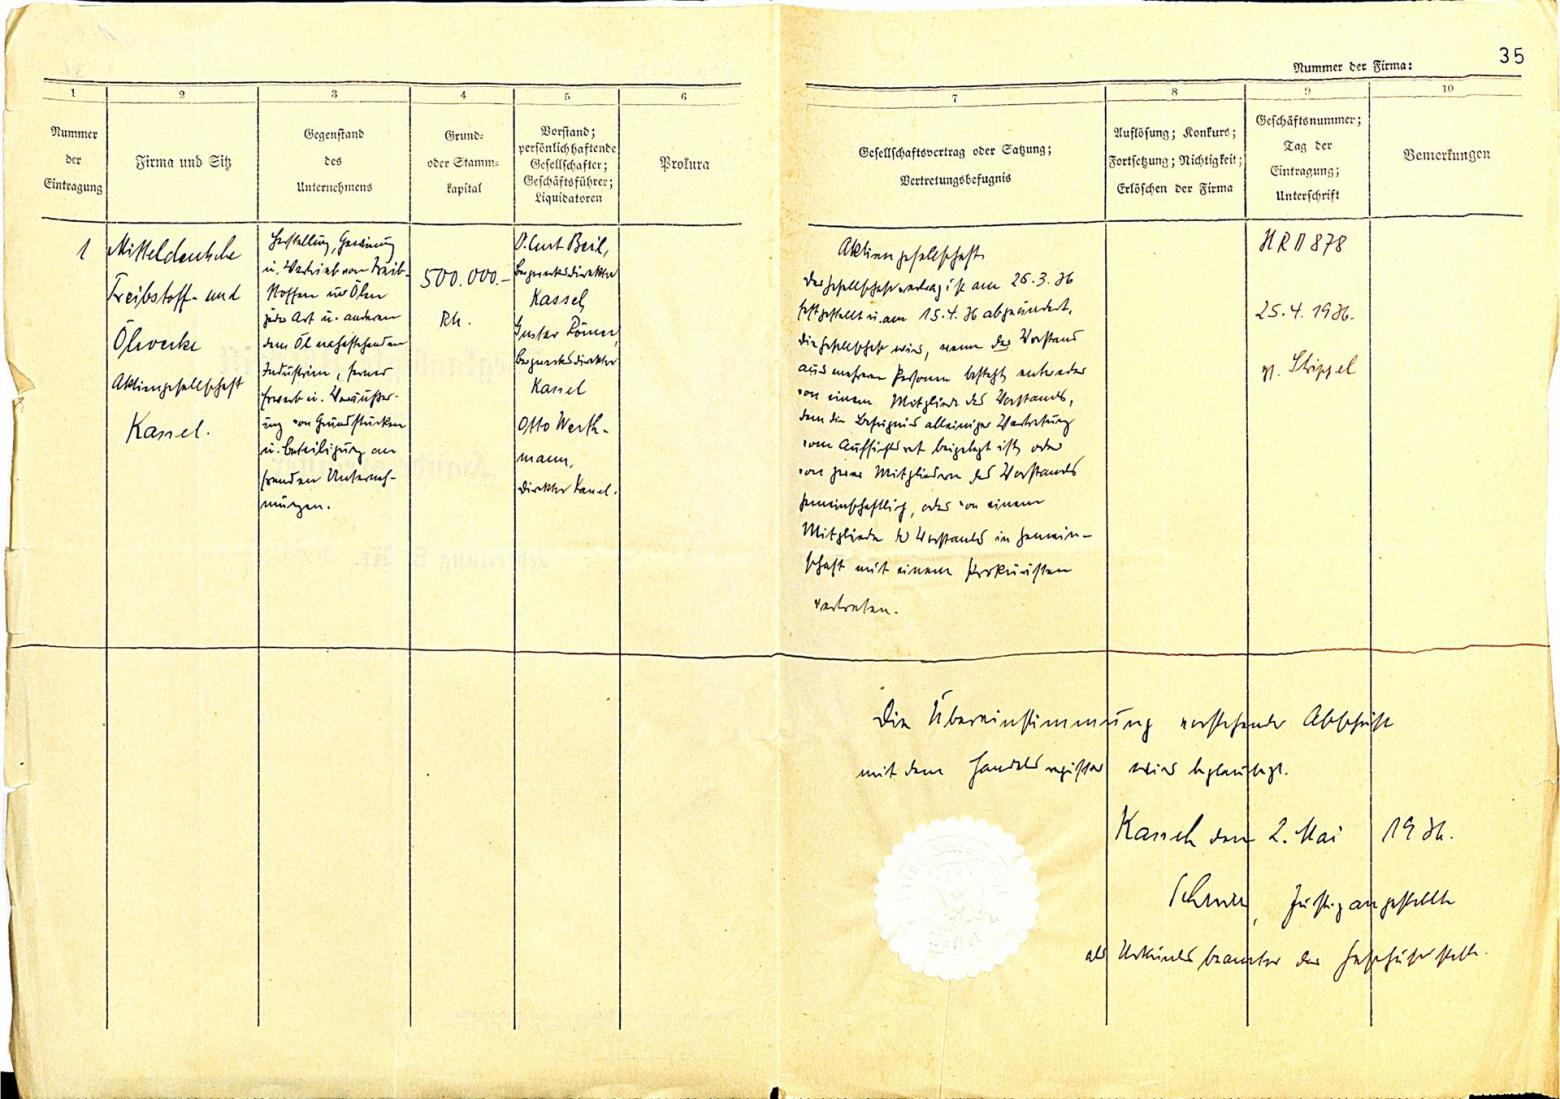 35
Nummer der Firma:
1
2
3
4
5
6
7
8
9
10
Nummer
der
Eintragung
Firma und Sitz
Gegenstand
des
Unternehmens
Grund-
oder Stamm-
kapital
Vorstand;
persönlich haftende
Gesellschafter;
Geschäftsführer;
Liquidatoren
Prokura
Gesellschaftsvertrag oder Satzung;
Vertretungsbefugnis
Auflösung; Konkurs;
Fortsetzung; Nichtigkeit;
Erlöschen der Firma
Geschäftsnummer;
Tag der
Eintragung;
Unterschrift
Bemerkungen
1
Mitteldeutsche
Treibstoff- und
Ölwerke
Aktiengesellschaft
Kassel.
Herstellung, Gewinnung
u. Vertrieb von Treib-
stoffen und Ölen
jeder Art u. anderen
dem Öl nahestehenden
Industrien, ferner
Erwerb u. Veräußer-
ung von Grundstücken
u. Beteiligung an
fremden Unterneh-
mungen.
500.000.-
RM.
Curt Beil,
Bergwerksdirektor
Kassel,
Gustav Römer,
Bergwerksdirektor
Kassel
Otto Werth-
mann,
Direktor Kassel.
Aktiengesellschaft.
Der Gesellschaftsvertrag ist am 26.3.36
festgestellt u. am 15.4.36 abgeändert.
Die Gesellschaft wird, wenn der Vorstand
aus mehreren Personen besteht entweder
von einem Mitgliede des Vorstands,
dem die Befugnis alleiniger Vertretung
vom Aufsichtsrat beigelegt ist, oder
von zwei Mitgliedern des Vorstands
gemeinschaftlich, oder von einem
Mitgliede des Vorstands in Gemein-
schaft mit einem Prokuristen
vertreten.
HRB 878
25.4.1936.
Die Übereinstimmung vorstehender Abschrift
mit dem Handelsregister wird beglaubigt.
Kassel, den 2. Mai 1936.
Justizangestellter
als Urkundsbeamter der Geschäftsstelle.
Kassel